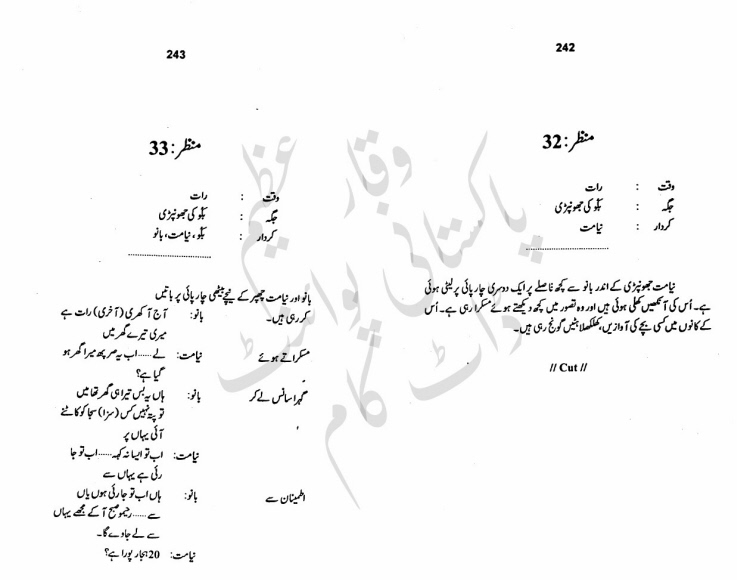 242
منظر: 32
وقت : رات
جگہ : بگو کی جھونپڑی
کردار : نیامت
نیامت جھونپڑی کے اندر بانو سے کچھ فاصلے پر ایک دوسری چارپائی پر لیٹی ہوئی
ہے۔ اُس کی آنکھیں کھلی ہوئی ہیں اور وہ تصور میں کچھ دیکھتے ہوئے مسکرا رہی ہے۔ اُس
کے کانوں میں کسی بچے کی آوازیں، کھلکھلاہٹیں گونج رہی ہیں۔
// Cut //
243
منظر: 33
وقت : رات
جگہ : بگو کی جھونپڑی
کردار : بگو، نیامت، بانو
بانو اور نیامت چھپر کے نیچے بیٹھی چارپائی پر باتیں
کر رہی ہیں۔
بانو: آج آکھری (آخری) رات ہے
میری تیرے گھر میں
مسکراتے ہوئے نیامت: لے......اب یہ صرپھ میرا گھر ہو
گیا ہے؟
گہرا سانس لے کر بانو: ہاں یہ بس تیرا ہی گھر تھا میں
تو پتہ نہیں کس (سزا) سجا کو کاٹنے
آئی یہاں پر
نیامت: اب تو ایسا نہ کہہ......اب تو جا
رئی ہے یہاں سے
اطمینان سے بانو: ہاں اب تو جا رئی ہوں یاں
سے......رحیمو صبح آ کے مجھے یہاں
سے لے جاوے گا۔
نیامت: 20 ہجار پورا ہے؟
وقار عظیم
پاکستانی پوائنٹ
ڈاٹ کام